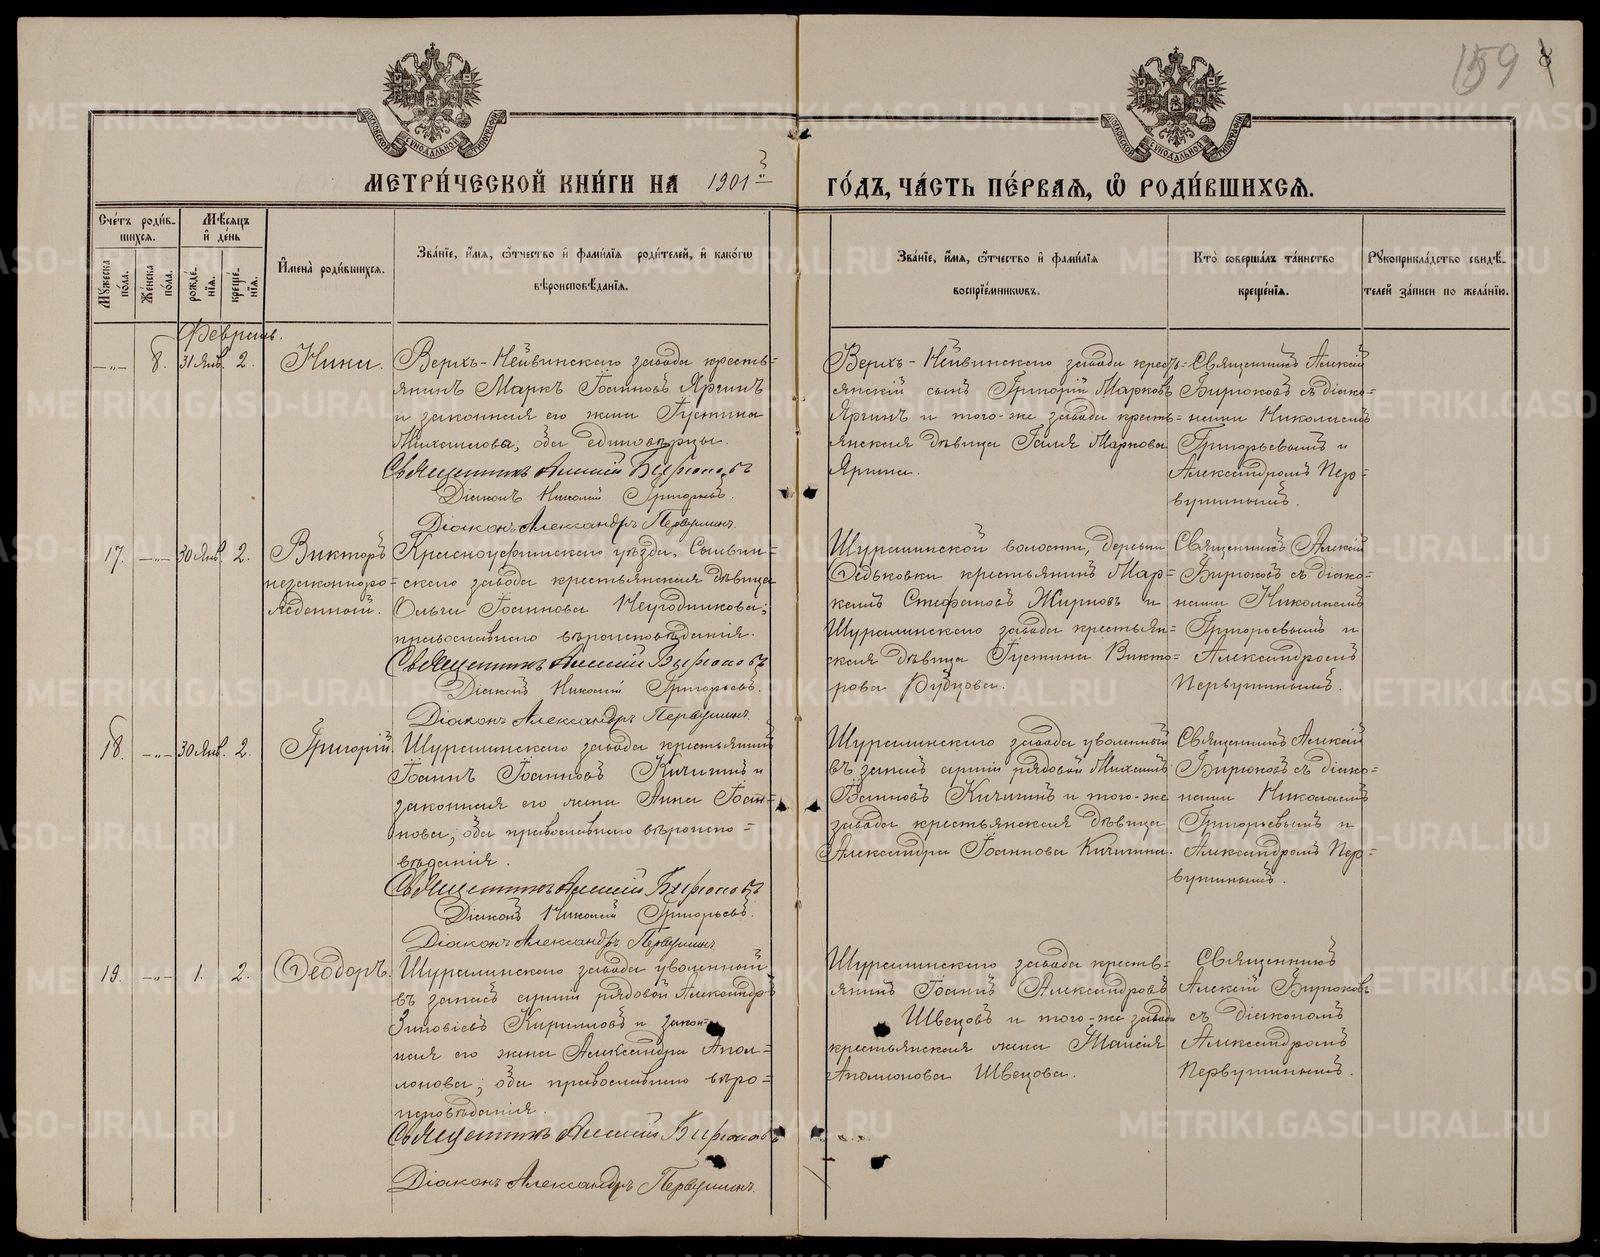 159
8
МЕТРИ́ЧЕСКОЙ КНИ́ГИ НА 1901й ГО́ДЪ, ЧА́СТЬ ПЕ́РВАЯ, Ѡ РОДИ́ВШИХСЯ.
Сче́тъ роди́в-
шихся.
Мѣ́сяцъ
и де́нь
Мꙋ́жеска по́ла.
Же́нска по́ла.
рожде́-
нія.
креще́-
нія.
И҆мена̀ роди́вшихся.
Зва́нїе, и҆́мя, ѻ҆́тчество и҆ фами́лїя роди́телей, и҆ како́гѡ
вѣроисповѣ́данїя.
Зва́нїе, и҆́мя, ѻ҆́тчество и҆ фами́лїя
воспрїе́мникѡвъ.
Кто̀ соверша́лъ та́инство
креще́нїя.
Рꙋкоприкла́дство свидѣ́-
телей за́писи по жела́нїю.
Февраль.
—„— 8. 31 Янв. 2. Нина.
Верхъ-Нейвинскаго завода кресть=
янинъ Маркъ Іоанновъ Яринъ
и законная его жена Іустина
Михаилова, оба единовѣрцы.
Священникъ Алексій Бирюковъ
Діаконъ Николай Григорьевъ.
Діаконъ Александръ Первушинъ.
Верхъ-Нейвинскаго завода кресть=
янскій сынъ Григорій Марковъ
Яринъ и того-же завода кресть=
янская дѣвица Маркова
Ярина.
Священникъ Алексій
Бирюковъ съ діако=
нами Николаемъ
Григорьевымъ и
Александромъ Пер=
вушинымъ.
17. —„— 30 Янв. 2. Викторъ
незаконноро=
жденный.
Красноуфимскаго уѣзда, Сылвин=
скаго завода крестьянская дѣвица
Ольга Іоаннова Неугодникова;
православнаго вѣроисповѣданія.
Священникъ Алексій Бирюковъ
Діаконъ Николай Григорьевъ.
Діаконъ Александръ Первушинъ.
Шуралинской волости, деревни
Ѳедьковки крестьянинъ Мар=
келъ Стефановъ Жирновъ и
Шуралинскаго завода крестьян=
ская дѣвица Іустина Викто=
рова Рубцова.
Священникъ Алексій
Бирюковъ съ діако=
нами Николаемъ
Григорьевымъ и
Александромъ
Первушинымъ.
18. —„— 30 Янв. 2. Григорій.
Шуралинскаго завода крестьянинъ
Іоаннъ Іоанновъ Кичигинъ и
законная его жена Анна Іоан=
нова, оба православнаго вѣроиспо=
вѣданія.
Священникъ Алексій Бирюковъ
Діаконъ Николай Григорьевъ.
Діаконъ Александръ Первушинъ.
Шуралинскаго завода уволенный
въ запасъ арміи рядовой Михаилъ
Іоанновъ Кичигинъ и того-же
завода крестьянская дѣвица
Александра Іоаннова Кичигина.
Священникъ Алексій
Бирюковъ съ діако=
нами Николаемъ
Григорьевымъ и
Александромъ Пер=
вушинымъ.
19. —„— 1. 2. Ѳеодоръ.
Шуралинскаго завода уволенный
въ запасъ арміи рядовой Александръ
Зиновіевъ Кирилловъ и закон=
ная его жена Александра Апол=
лонова; оба православнаго вѣро=
исповѣданія.
Священникъ Алексій Бирюковъ
Діаконъ Александръ Первушинъ.
Шуралинскаго завода кресть=
янинъ Іоаннъ Александровъ
Швецовъ и того-же завода
крестьянская жена Таисія
Аполлонова Швецова.
Священникъ
Алексій Бирюковъ
съ діакономъ
Александромъ
Первушинымъ.
METRIKI.GASO-URAL.RU